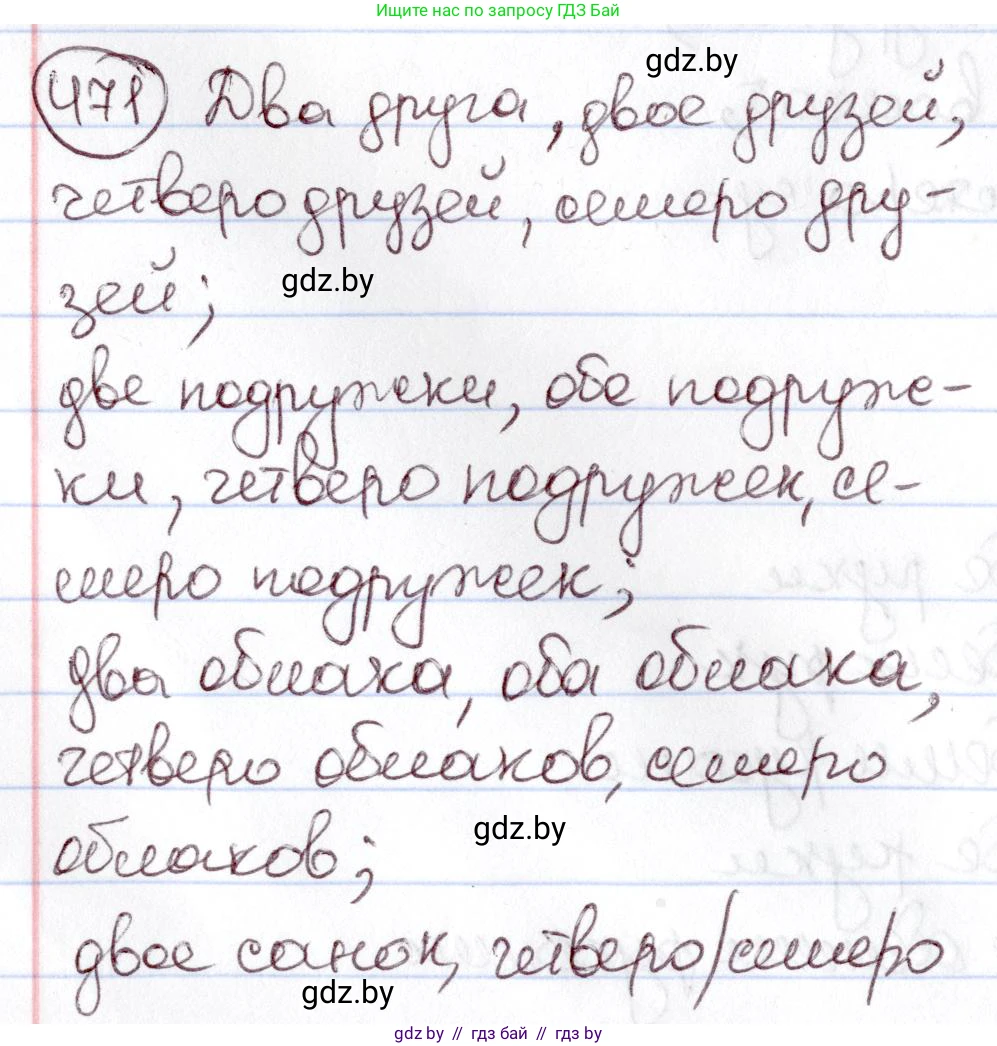 Ищите нас по запросу ГДЗ Бай
gdz.by
471 Два друга, двое друзей,
четверо друзей, семеро дру-
gdz.by
зей;
две подружки, обе подруж-
ки, четверо подружек, се-
меро подружек;
два облака, оба облака,
четверо облаков, семеро
gdz.by
облаков;
двое санок, четверо/семеро
gdz.by
gdz.by // гдз бай // гдз by